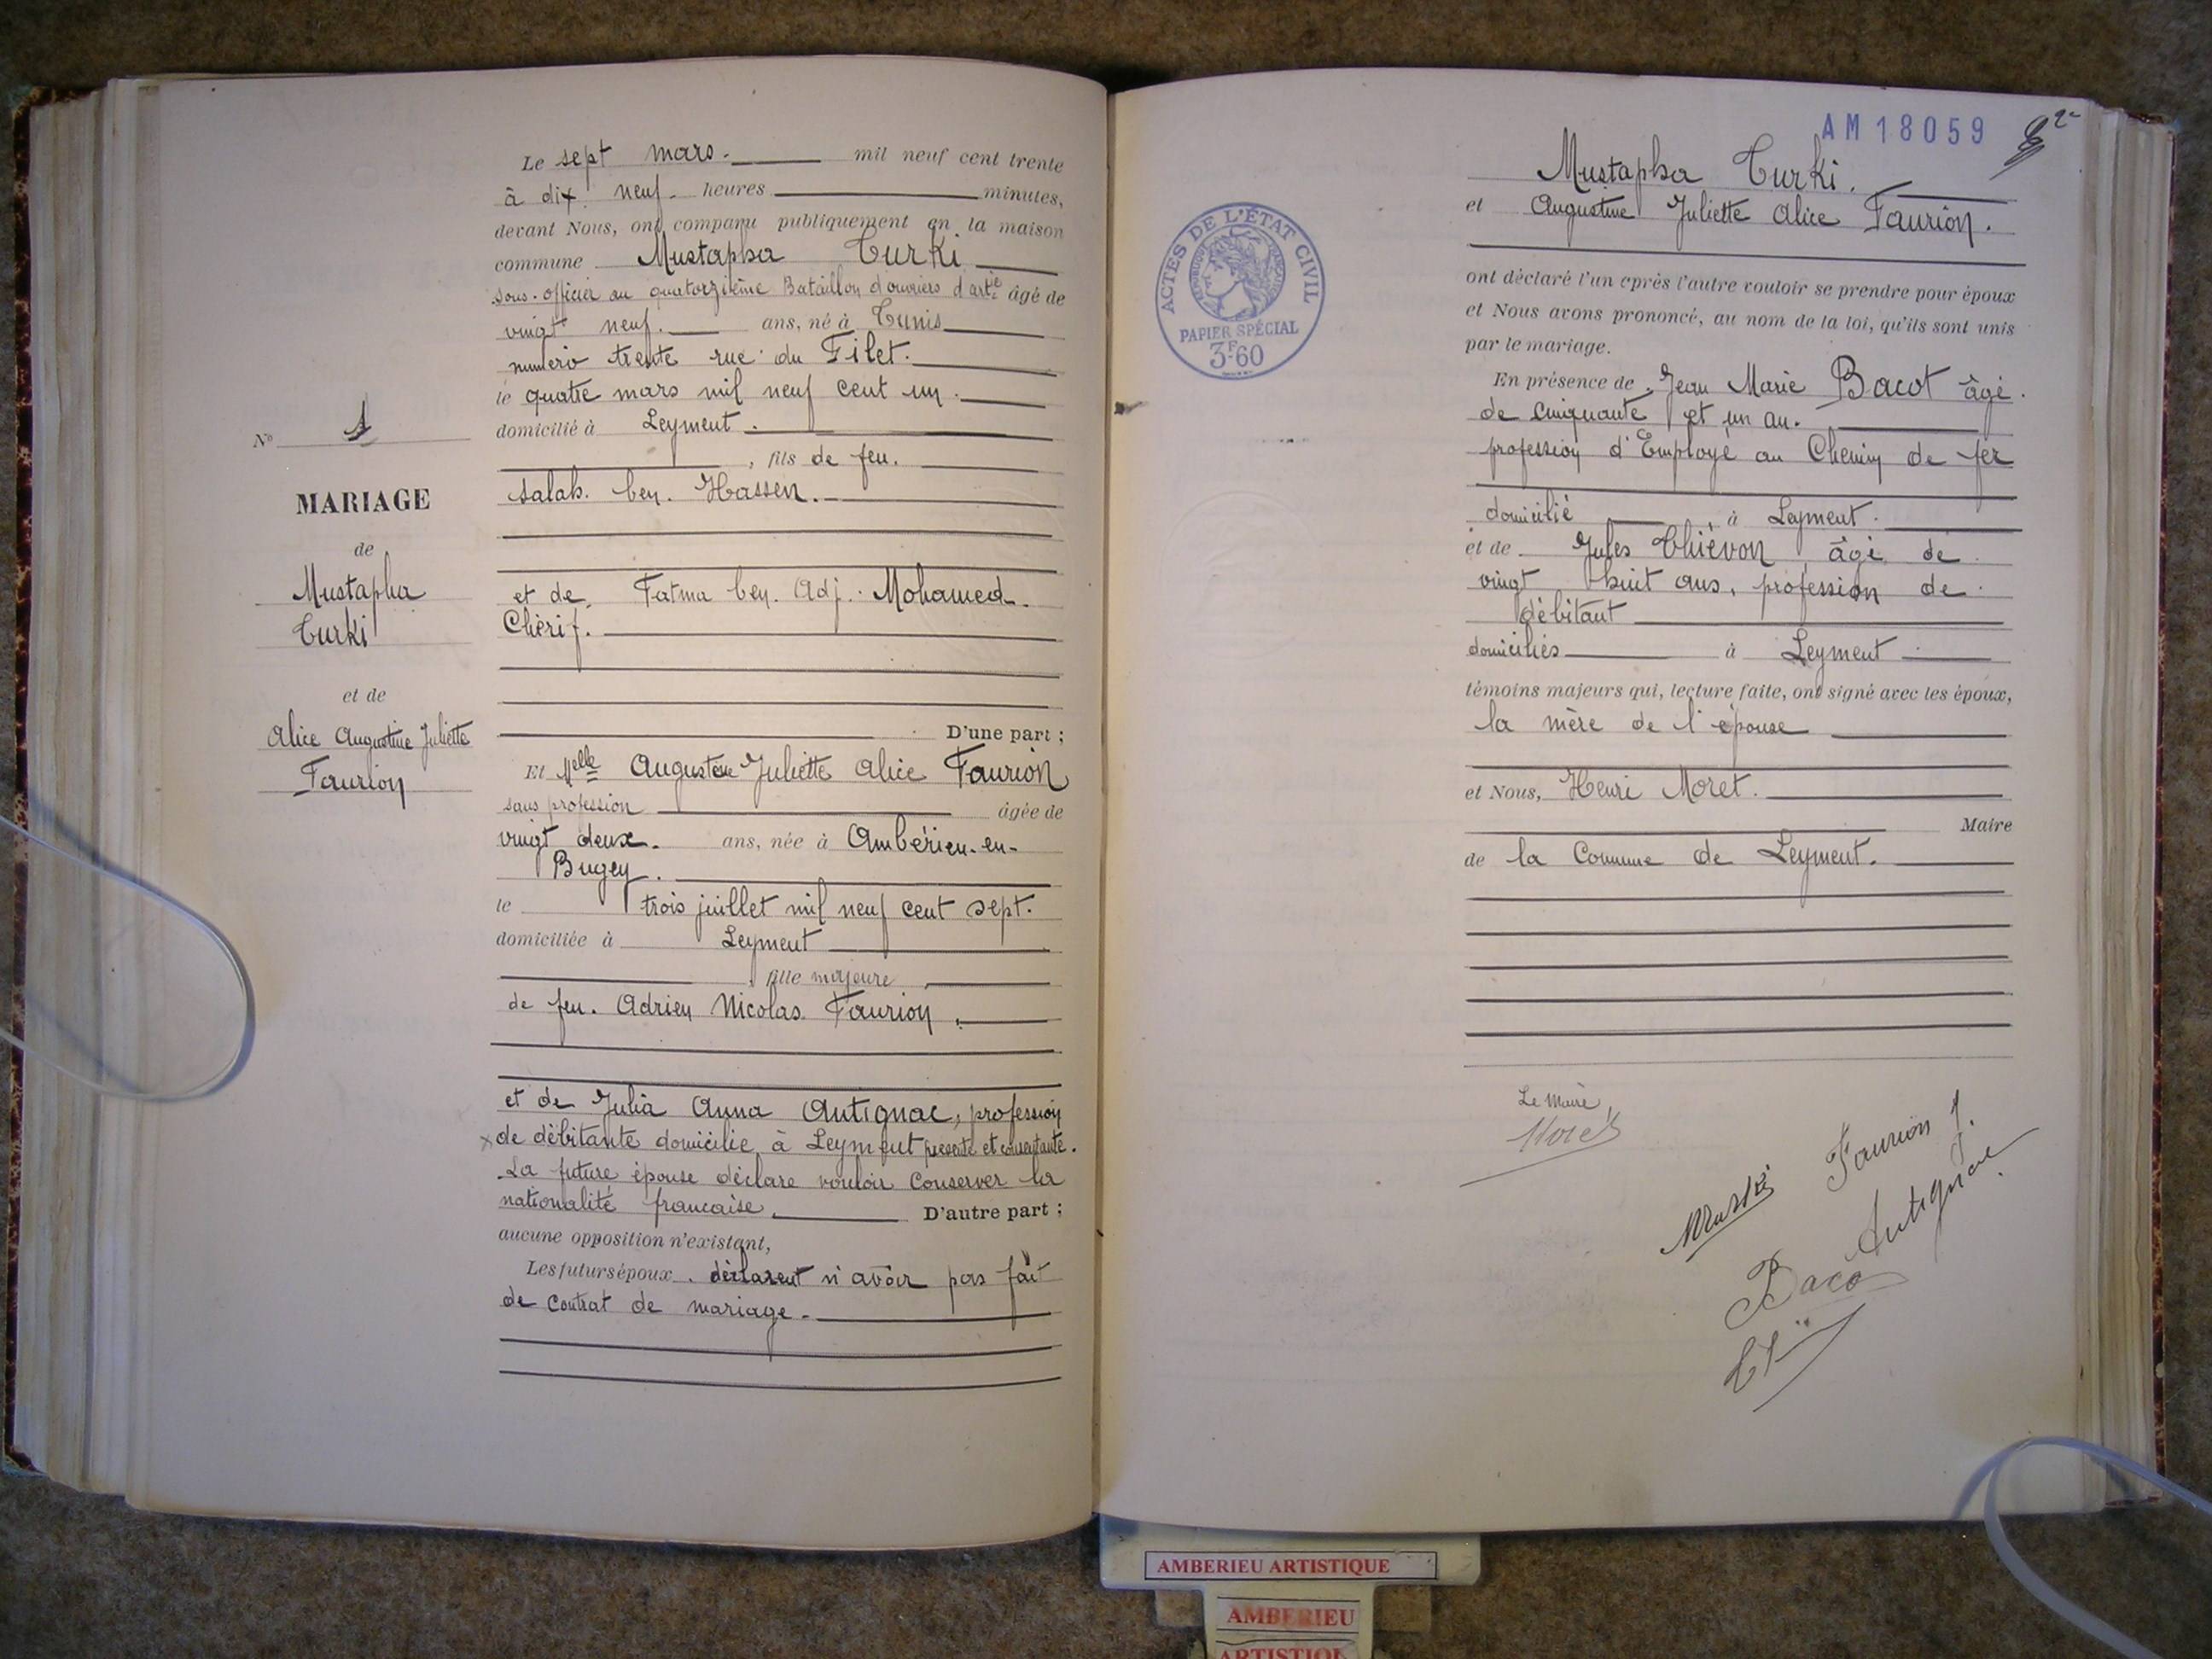 Le sept mars. mil neuf cent trente
à dix neuf. heures minutes,
devant Nous, ont comparu publiquement en la maison
commune Mustapha Turki
sous-officier au quatorzième Bataillon d'ouvriers d'artie âgé de
vingt neuf. ans, né à Tunis
numéro trente rue du Filet.
le quatre mars mil neuf cent un.
domicilié à Leyment.
, fils de feu.
Salah. ben. Hassen.
et de. Fatma ben. Adj. Mohamed.
Chérif.
D'une part ;
Et Melle Augustine Juliette Alice Faurion
sans profession âgée de
vingt deux. ans, née à Ambérieu-en-
Bugey.
le trois juillet mil neuf cent sept.
domiciliée à Leyment
, fille majeure
de feu. Adrien Nicolas Faurion.
et de Julia Anna Antignac, profession
x de débitante domicilie à Leyment présente et consentante.
La future épouse déclare vouloir conserver la
nationalité française. D'autre part ;
aucune opposition n'existant,
Les futurs époux. déclarent n'avoir pas fait
de contrat de mariage.
N° 1
MARIAGE
de
Mustapha
Turki
et de
Alice Augustine Juliette
Faurion
AM18059
Mustapha Turki.
et Augustine Juliette Alice Faurion.
ont déclaré l'un après l'autre vouloir se prendre pour époux
et Nous avons prononcé, au nom de la loi, qu'ils sont unis
par le mariage.
En présence de. Jean Marie Bacot âgé.
de cinquante et un an.
profession d'Employé au Chemin de fer
domicilié , à Leyment.
et de Jules Thiévon, âgé de
vingt huit ans, profession de
débitant
domiciliés à Leyment
témoins majeurs qui, lecture faite, ont signé avec les époux,
la mère de l'épouse
et Nous, Henri Moret.
Maire
de la Commune de Leyment.
ACTES DE L'ÉTAT CIVIL
RÉPUBLIQUE FRANÇAISE
PAPIER SPÉCIAL
3F60
Le Maire,
Moret
Faurion J.
Antignac
Baco
AMBERIEU ARTISTIQUE
AMBERIEU
ARTISTIQUE